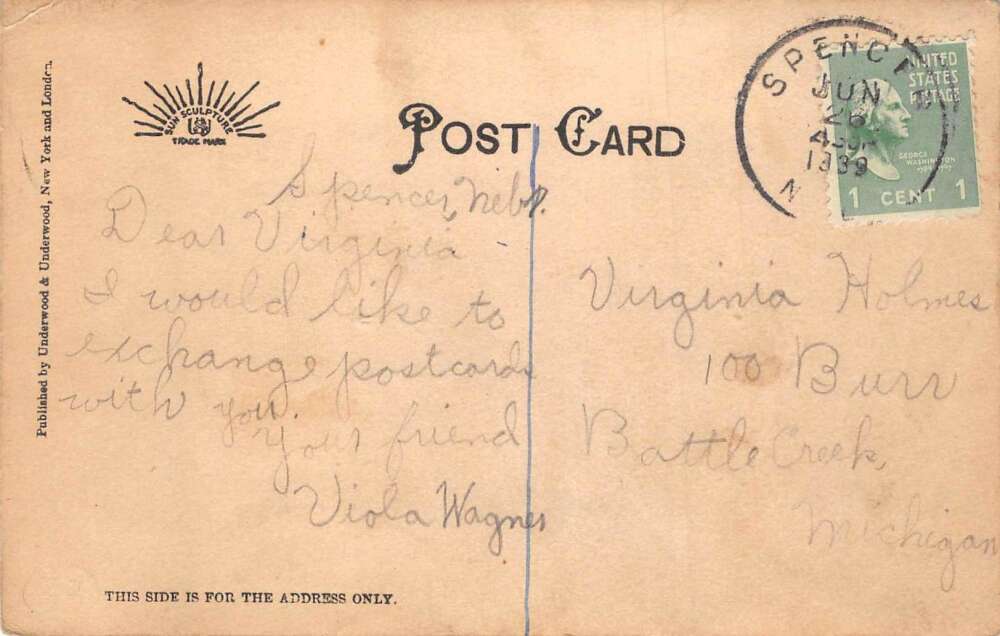 Published by Underwood & Underwood, New York and London.
SUN SCULPTURE
U&U
TRADE MARK
POST CARD
SPENCE
JUN
26
1939
N
UNITED
STATES
POSTAGE
GEORGE
WASHINGTON
1 CENT 1
Spencer, Nebr.
Dear Virginia
I would like to
exchange postcards
with you.
Your friend
Viola Wagner
Virginia Holmes
100 Burr
Battle Creek,
Michigan
THIS SIDE IS FOR THE ADDRESS ONLY.